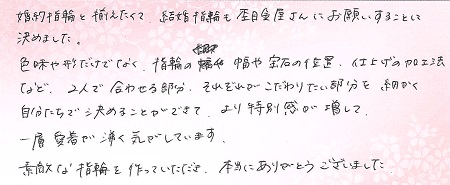 婚約指輪と揃えたくて、結婚指輪も杢目金屋さんにお願いすることに
決めました。
色味や形だけでなく、指輪の幅や宝石の位置、仕上げの加工法
など、2人で合わせる部分、それぞれがこだわりたい部分を細かく
自分たちで決めることができて、より特別感が増して、
一層愛着が湧く気がしています。
素敵な指輪を作っていただき、本当にありがとうございました。